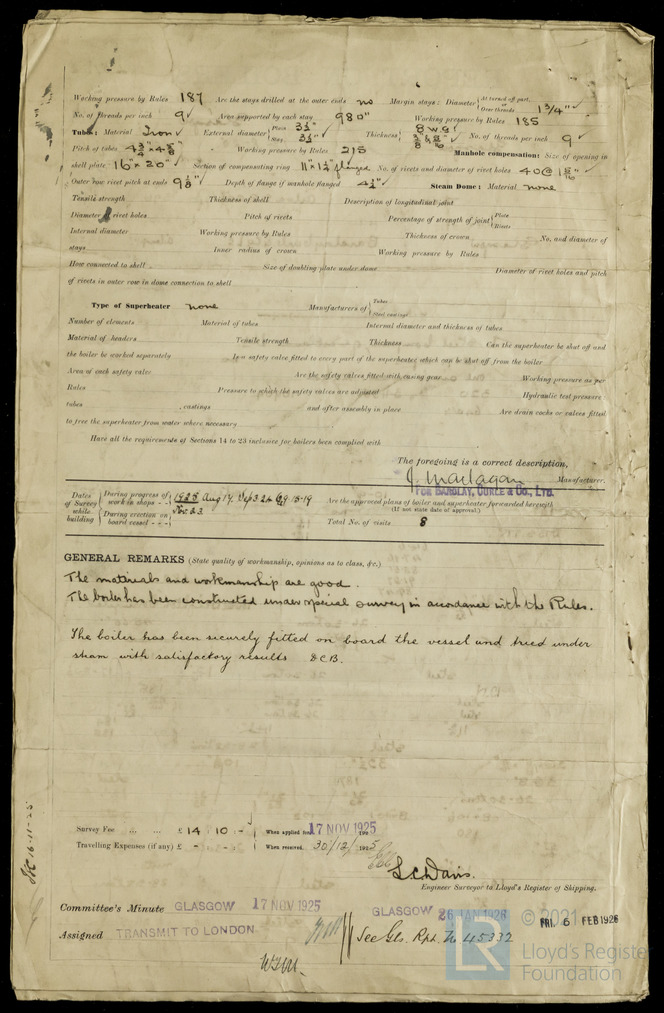 Working pressure by Rules 187 Are the stays drilled at the outer ends no Margin stays: Diameter { At turned off part, or Over threads 1 3/4" ✓
No. of threads per inch 9 ✓ Area supported by each stay 980" Working pressure by Rules 185
Tubes: Material Iron ✓ External diameter { Plain 3 1/2" Stay 3 1/2" Thickness { 8 W.G. No. of threads per inch 9 ✓
Pitch of tubes Working pressure by Rules 215 Manhole compensation: Size of opening in
shell plate 16" x 20" ✓ Section of compensating ring flanged No. of rivets and diameter of rivet holes 40 @
Outer row rivet pitch at ends 9 1/8" ✓ Depth of flange if manhole flanged Steam Dome: Material none
Tensile strength Thickness of shell Description of longitudinal joint
Diameter of rivet holes Pitch of rivets Percentage of strength of joint { Plate Rivets
Internal diameter Working pressure by Rules Thickness of crown No. and diameter of
stays Inner radius of crown Working pressure by Rules
How connected to shell Size of doubling plate under dome Diameter of rivet holes and pitch
of rivets in outer row in dome connection to shell
Type of Superheater none Manufacturers of { Tubes Steel castings
Number of elements Material of tubes Internal diameter and thickness of tubes
Material of headers Tensile strength Thickness Can the superheater be shut off and
the boiler be worked separately Is a safety valve fitted to every part of the superheater which can be shut off from the boiler
Area of each safety valve Are the safety valves fitted with easing gear Working pressure as per
Rules Pressure to which the safety valves are adjusted Hydraulic test pressure:
tubes , castings and after assembly in place Are drain cocks or valves fitted
to free the superheater from water where necessary
Have all the requirements of Sections 14 to 23 inclusive for boilers been complied with
The foregoing is a correct description,
J. Maclagan Manufacturer.
FOR BARCLAY, CURLE & Co., LTD.
Dates of Survey while building { During progress of work in shops - - 1925 Aug 14. Sep 3. 24 13. 19
During erection on board vessel - - - Nov. 23
Are the approved plans of boiler and superheater forwarded herewith
(If not state date of approval.)
Total No. of visits 8
GENERAL REMARKS (State quality of workmanship, opinions as to class, &c.)
The materials and workmanship are good.
The boiler has been constructed under special survey in accordance with the Rules.
The boiler has been securely fitted on board the vessel and tried under
steam with satisfactory results
Survey Fee ... ... £ 14 : 10 : - When applied for, 17 NOV 1925
Travelling Expenses (if any) £ - : - : When received, 30/12/ 1925
L. C. Davis.
Engineer Surveyor to Lloyd's Register of Shipping.
16-11-25
Committee's Minute GLASGOW 17 NOV 1925 GLASGOW 26 JAN 1926 FRI. 5 FEB 1926
Assigned TRANSMIT TO LONDON See Gls. Rpt. No 45332
© 2021
LR
Lloyd's Register
Foundation